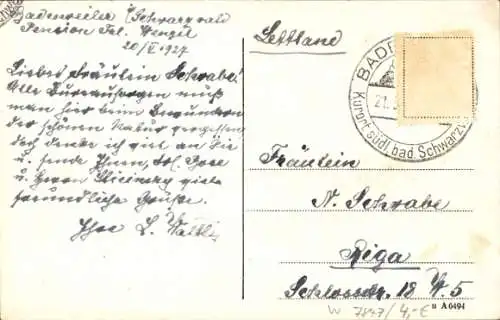 Badenweiler / Schwarzwald
Pension Frl. Wenzel
20/V. 1927
Liebes Fräulein Schwabe!
Alle Bureausorgen muß
man hier beim Bewundern
der schönen Natur vergessen
doch denke ich viel an Sie
u. sende Ihnen, Frl. Bose
u. Herrn viele
freundliche Grüße.
Ihre L.
Lettland
BADE
21.
Kurort südl. bad. Schwarzw
Fräulein
N. Schwabe
Riga
Schlossstr. 18 W. 5
W 7847 / 4,- €
A 6494